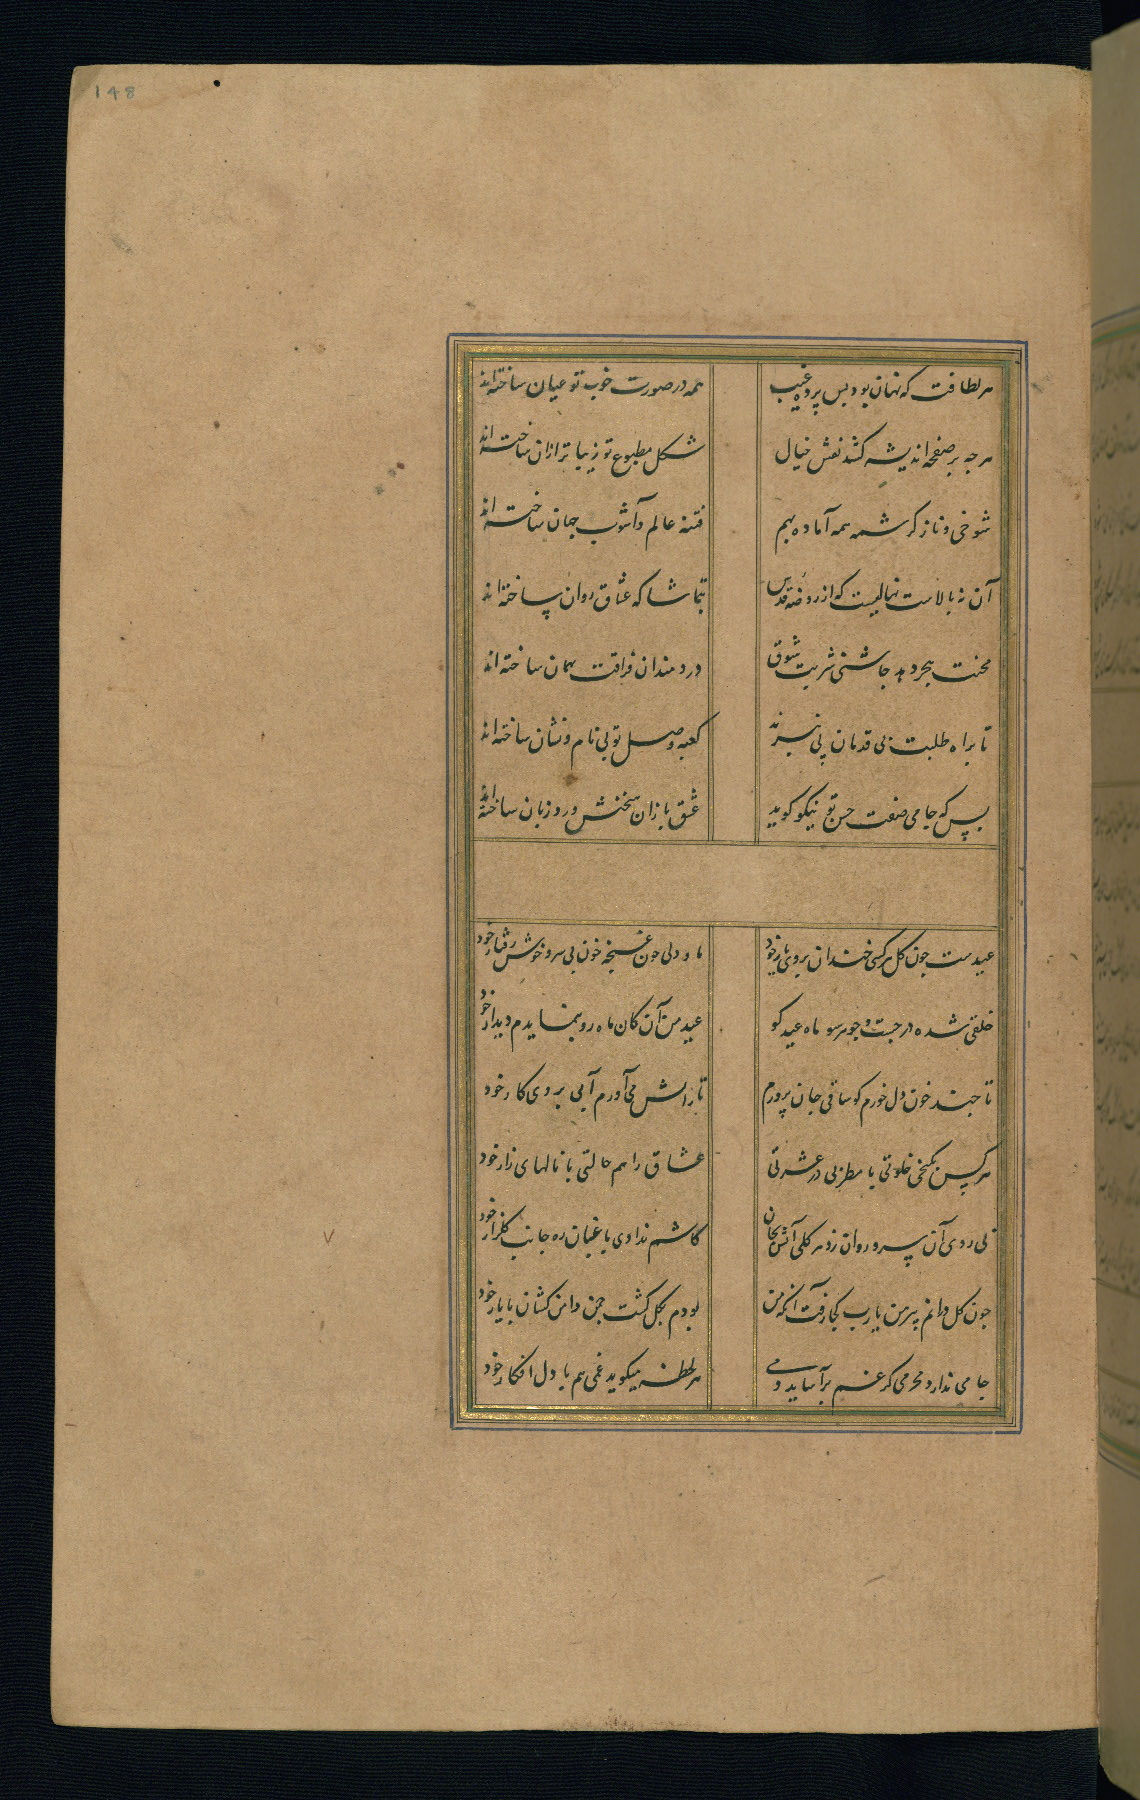 148
هر لطافت که نهان بود پس پرده غیب همه در صورت خوب تو عیان ساخته‌اند
هرچه بر صفحه اندیشه کشد نقش خیال شکل مطبوع تو زیباتر ازان ساخته‌اند
شوخی و ناز کرشمه همه آماده بهم فتنه عالم و آشوب جهان ساخته‌اند
آن نه بالاست نهالیست که از روضه قدس بتماشا که عشاق روان ساخته‌اند
محنت هجر دهد چاشنی شربت شوق دردمندان فراقت همان ساخته‌اند
تا براه طلبت بی قدمان پی نبرند کعبه وصل تو بی نام و نشان ساخته‌اند
بس که جامی صفت حسن تو نیکو گوید عشق بازان سخنش ورد زبان ساخته‌اند
عیدست چون گل هر کسی خندان بروی یار خود ما و دلی چون غنچه خون بی سرو خوش رفتار خود
خلقی شده در جست و جو هر سو ماه عید کو عید من آن کان ماه رو بنمایدم دیدار خود
تا چند خون دل خورم کو ساقی جان پرورم تا زاتش می آورم آبی بروی کار خود
هر کس بکنجی خلوتی با مطربی در عشرتی عشاق را هم حالتی با نالهای زار خود
بی روی آن سرو روان زد هر گلی آتش بجان کاشم ندادی باغبان ره جانب گلزار خود
چون گل درانم پیرهن یارب کجا رفت آنکه من بودم بگل گشت چمن دامن کشان با یار خود
جامی ندارد محرمی کز غم برآساید دمی هر لحظه میگوید غمی هم با دل افکار خود
۷